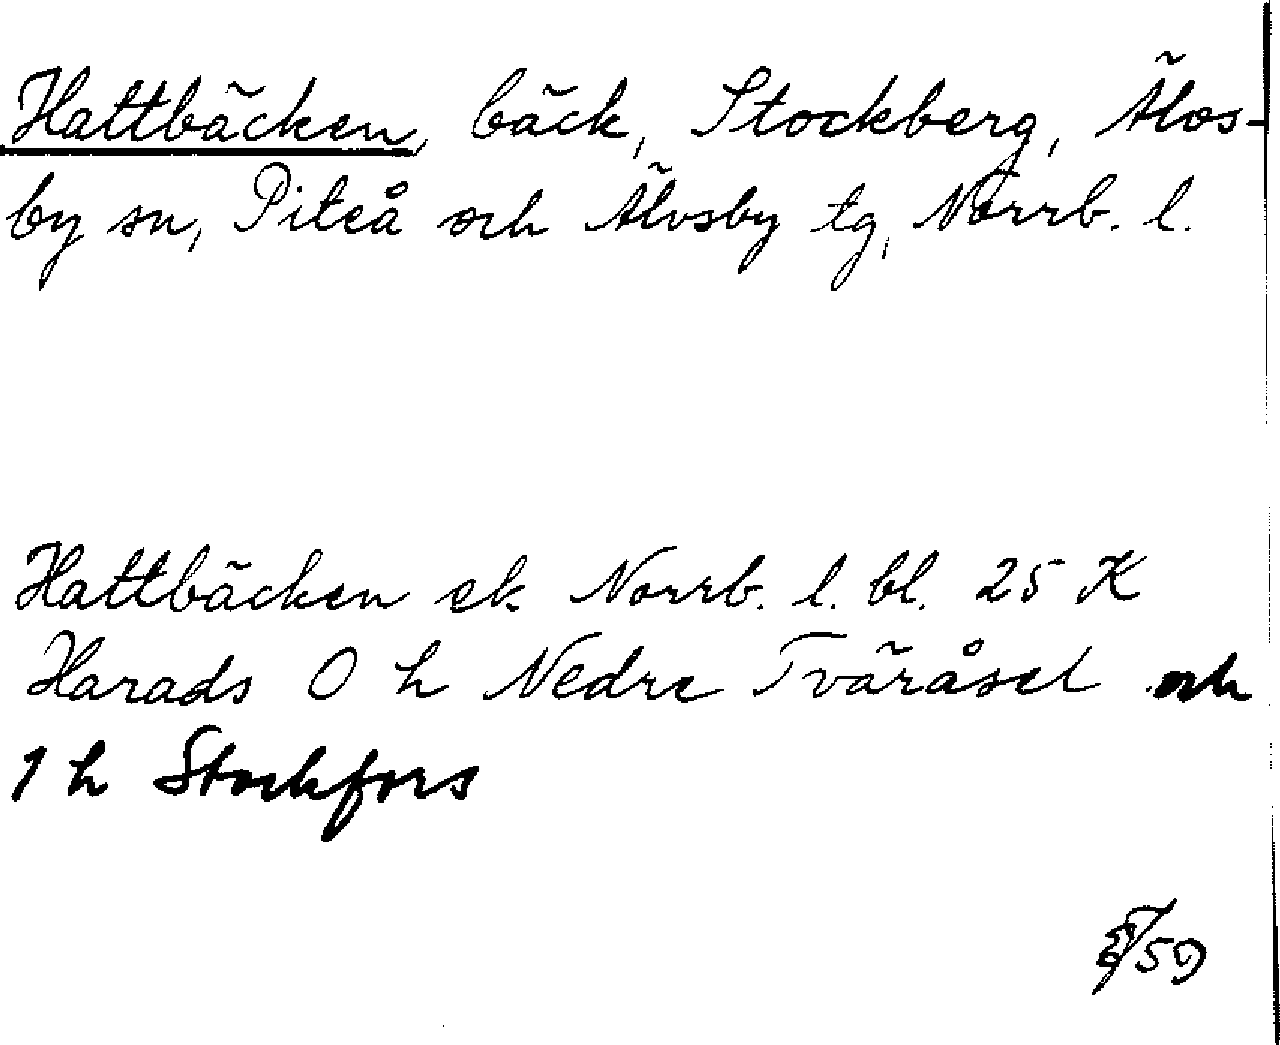 Hattbäcken, bäck, Stockberg, Älvs-
by sn, Piteå och Älvsby tg, Norrb. l.
Hattbäcken ek. Norrb. l. bl. 25 K
Harads O h Nedre Tväråsel och
1 h Stockfors
59